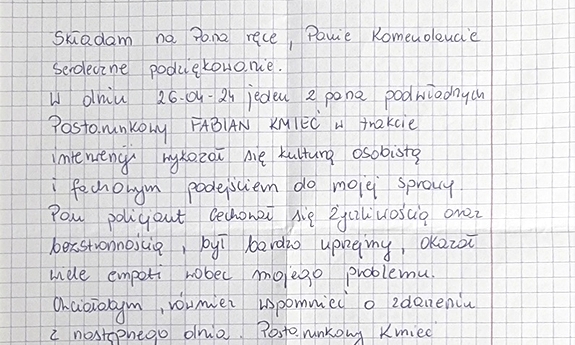 Składam na Pana ręce, Panie Komendancie
serdeczne podziękowanie.
W dniu 26-04-24 jeden z pana podwładnych
Posterunkowy FABIAN KMIEĆ w trakcie
interwencji wykazał się kulturą osobistą
i fachowym podejściem do mojej sprawy.
Pan policjant cechował się życzliwością oraz
bezstronnością, był bardzo uprzejmy, okazał
wiele empati wobec mojego problemu.
Chciałabym, również wspomnieć o zdarzeniu
z następnego dnia. Posterunkowy Kmieć